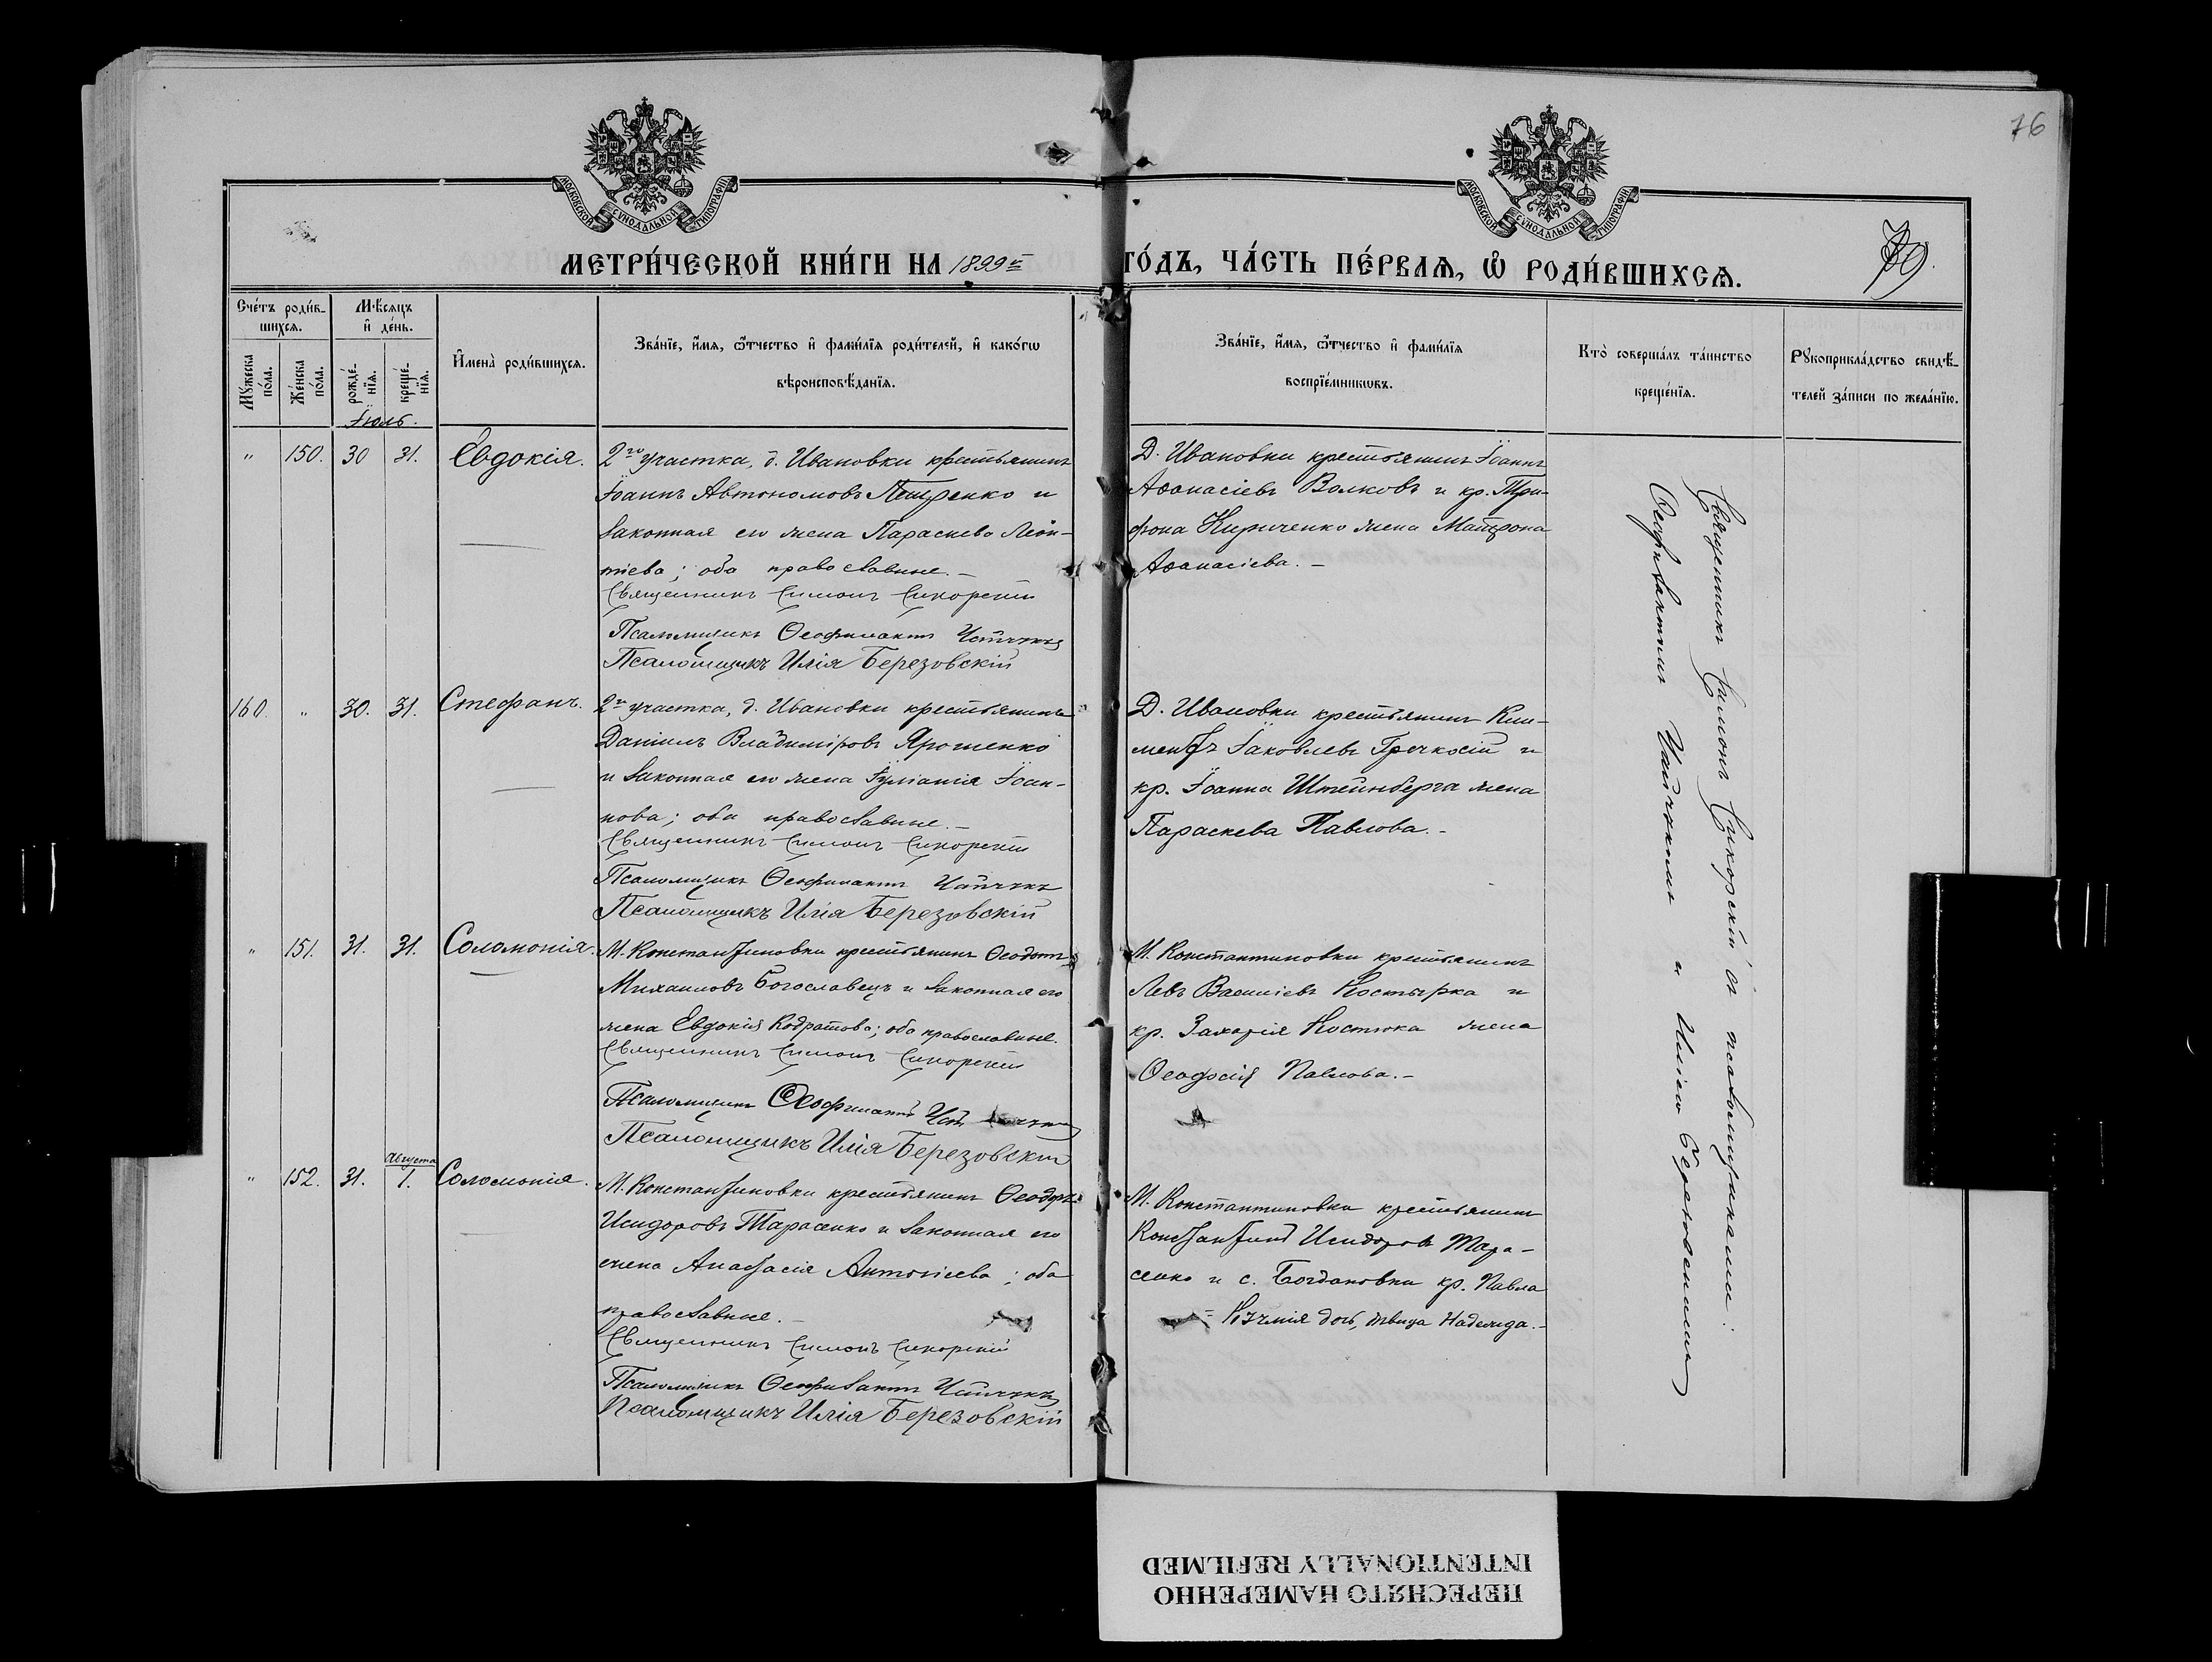 76
МОСКОВСКОЙ СУНОДАЛЬНОЙ ТИПОГРАФІИ
МОСКОВСКОЙ СУНОДАЛЬНОЙ ТИПОГРАФІИ
79.
МЕТРИ́ЧЕСКОЙ КНИ́ГИ НА 1899й
ГО́ДЪ, ЧА́СТЬ ПЕ́РВАѦ, Ѽ РОДИ́ВШИХСѦ.
Сче́тъ роди́в-
шихсѧ.
Мѣ́сѧцъ
и҆ де́нь.
Мꙋ́жеска
по́ла.
Же́нска
по́ла.
рожде́-
нїѧ.
креще́-
нїѧ.
И҆мена̀ роди́вшихсѧ.
Зва́нїе, и҆́мѧ, ѻ҆́тчество и҆ фами́лїѧ роди́телей, и҆ како́гѡ
вѣроисповѣ́данїѧ.
Зва́нїе, и҆́мѧ, ѻ҆́тчество и҆ фами́лїѧ
воспрїе́мникѡвъ.
Кто̀ соверша́лъ та́инство
креще́нїѧ.
Рꙋкоприкла́дство свидѣ́-
телей за́писи по жела́нїю.
Іюль.
" 150. 30 31. Евдокія.
2го участка, д. Ивановки крестьянинъ
Іоаннъ Автономовъ Петренко и
законная его жена Параскева Леон-
тіева; оба православные.-
Священникъ Симонъ Сикорскій
Псаломщикъ Ѳеофилактъ
Псаломщикъ Илія Березовскій
Д. Ивановки крестьянинъ Іоаннъ
Аѳанасіевъ Волковъ и кр. Три-
фона Кириченко жена Матрона
Аѳанасіева.-
160. " 30. 31. Стефанъ.
2го участка, д. Ивановки крестьянинъ
Даніилъ Владиміровъ Ярошенко
и законная его жена Іуліанія Іоан-
нова; оба православные.-
Священникъ Симонъ Сикорскій
Псаломщикъ Ѳеофилактъ
Псаломщикъ Илія Березовскій
Д. Ивановки крестьянинъ Кли-
ментъ Іаковлевъ Гречкосій и
кр. Іоанна Штейнберга жена
Параскева Павлова.-
" 151. 31. 31. Соломонія.
М. Константиновки крестьянинъ Ѳеодотъ
Михаиловъ Богославецъ и законная его
жена Евдокія Кодратова; оба православные.
Священникъ Симонъ Сикорскій
Псаломщикъ Ѳеофилактъ
Псаломщикъ Илія Березовскій
М. Константиновки крестьянинъ
Левъ Василіевъ Костырка и
кр. Захарія Костюка жена
Ѳеодосія Павлова.-
Августа
" 152. 31. 1. Соломонія.
М. Константиновки крестьянинъ Ѳеодоръ
Исидоровъ Тарасенко и законная его
жена Анастасія Антоніева; оба
православные.-
Священникъ Симонъ Сикорскій
Псаломщикъ Ѳеофилактъ
Псаломщикъ Илія Березовскій
М. Константиновки крестьянинъ
Константинъ Исидоровъ Тара-
сенко и с. Богдановки кр. Павла
дочь, дѣвица Надежда.-
Священникъ Симонъ Сикорскій съ псаломщиками:
Ѳеофилактомъ и Иліею Березовскимъ
ПЕРЕСНЯТО НАМЕРЕННО
INTENTIONALLY REFILMED